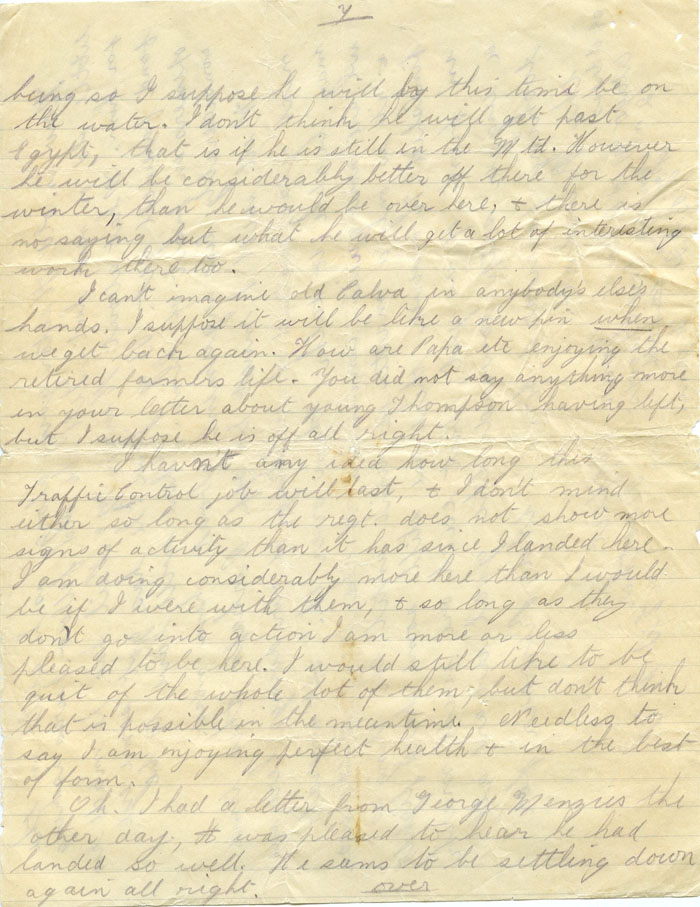 7
being so I suppose he will by this time be on
the water. I don't think he will get past
Egypt, that is if he is still in the Mtd. However
he will be considerably better off there for the
winter, than he would be over here, & there is
no saying but what he will get a lot of interesting
work there too.
I can't imagine old Calva in anybody's else's
hands. I suppose it will be like a new pin when
we get back again. How are Papa etc enjoying the
retired farmers life. You did not say anything more
in your letter about young Thompson having left,
but I suppose he is off all right.
I havn't any idea how long this
Traffic Control job will last, & I don't mind
either so long as the regt. does not show more
signs of activity than it has since I landed here.
I am doing considerably more here than I would
be if I were with them, & so long as they
don't go into action I am more or less
pleased to be here. I would still like to be
quit of the whole lot of them, but don't think
that is possible in the meantime. Needless to
say I am enjoying perfect health & in the best
of form.
Oh. I had a letter from George Menzies the
other day, & was pleased to hear he had
landed so well. He sums to be settling down
again all right. over